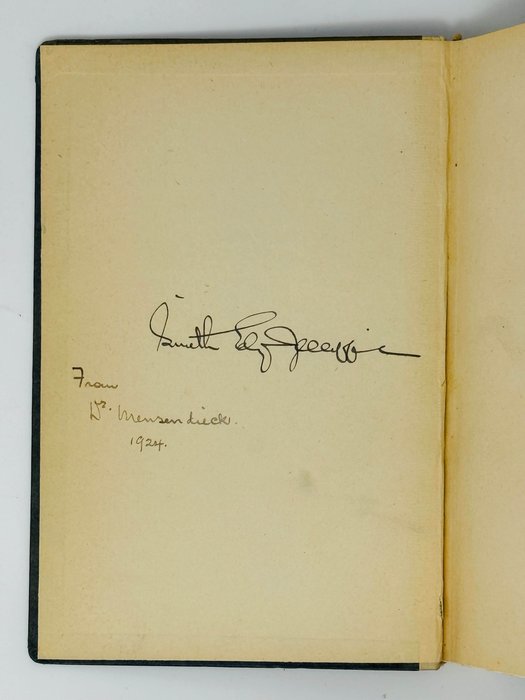 Smith Ely Jelliffe
From
Dr. Mensendieck.
1924.